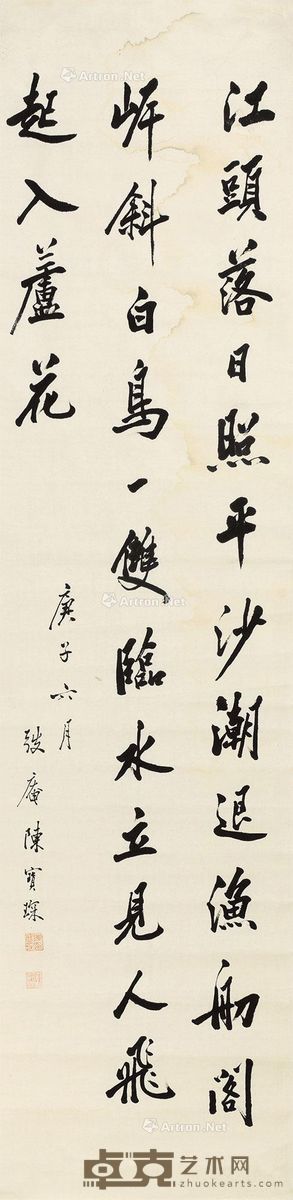 江頭落日照平沙潮退漁舠閣
岸斜白鳥一雙臨水立見人飛
起入蘆花
庚子六月
弢庵陳寶琛
Artron.Net
Artron.Net
Artron.Net
Artron.Net
卓克艺术网
www.zhuokearts.com